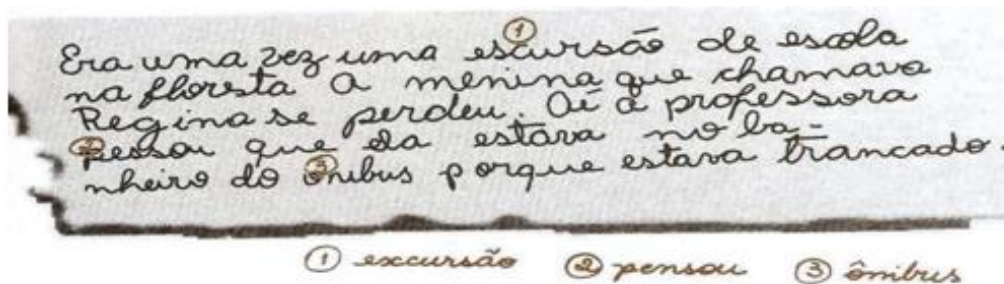 ①
Era uma vez uma escursão de escola
na floresta A menina que chamava
Regina se perdeu. Aí a professora
② pessou que ela estava no ba-
nheiro do ③ onibus porque estava trancado.
① excursão ② pensou ③ ônibus